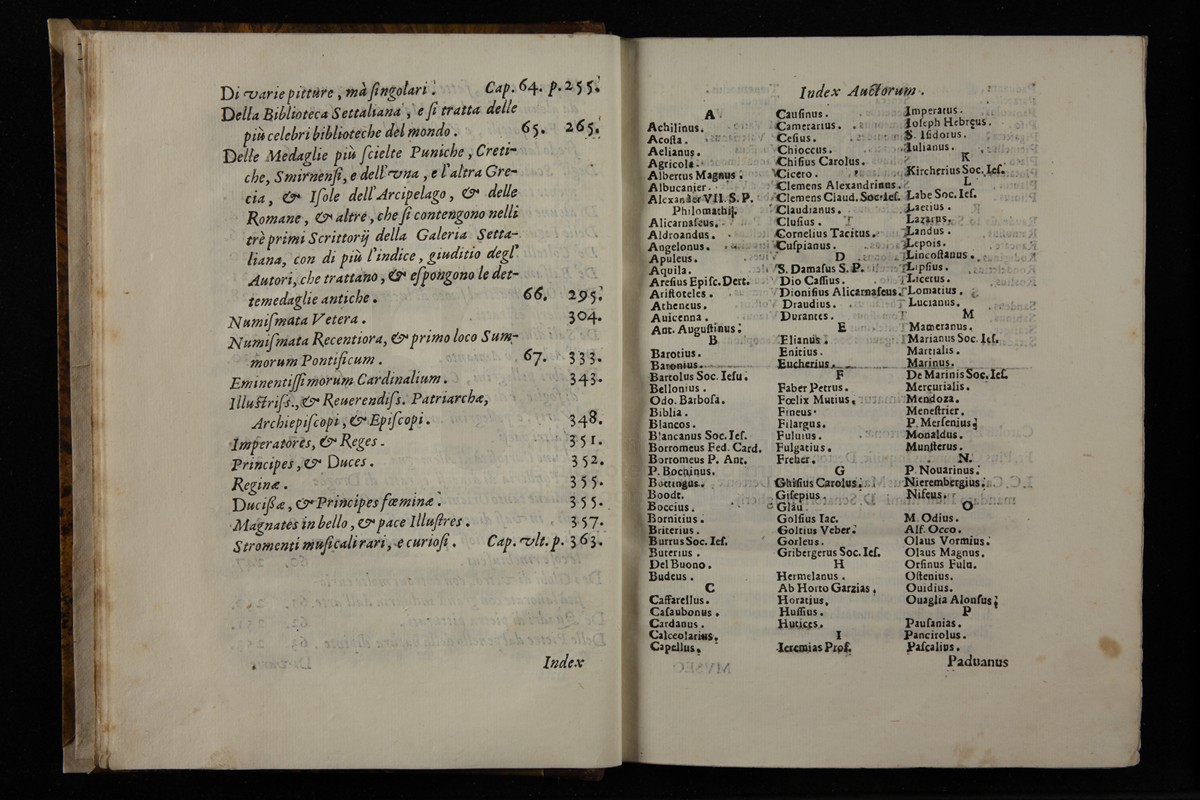 Di varie pitture, mà ſingolari. Cap. 64. p. 255.
Della Biblioteca Settaliana, e ſi tratta delle
più celebri biblioteche del mondo. 65. 265.
Delle Medaglie più ſcielte Puniche, Creti-
che, Smirnenſi, e dell'vna, e l'altra Gre-
cia, & Iſole dell'Arcipelago, & delle
Romane, & altre, che ſi contengono nelli
trè primi Scrittorij della Galeria Setta-
liana, con di più l'indice, giuditio degl'
Autori, che trattano, & eſpongono le det-
temedaglie antiche. 66. 295.
Numiſmata Vetera. 304.
Numiſmata Recentiora, & primo loco Sum-
morum Pontificum. 67. 333.
Eminentiſſimorum Cardinalium. 343.
Illuſtriſs., & Reuerendiſs. Patriarchæ,
Archiepiſcopi, & Epiſcopi. 348.
Imperatores, & Reges. 351.
Principes, & Duces. 352.
Reginæ. 355.
Ducißæ, & Principes fœminæ. 355.
Magnates in bello, & pace Illuſtres. 357.
Stromenti muſicali rari, e curioſi. Cap. vlt. p. 363.
Index
Index Auctorum.
A
Achilinus.
Acoſta.
Aelianus.
Agricola.
Albertus Magnus.
Albucanier.
Alexander VII. S. P.
Philomathiſ.
Alicarnaſeus.
Aldroandus.
Angelonus.
Apuleus.
Aquila.
Areſius Epiſc. Dert.
Ariſtoteles.
Atheneus.
Auicenna.
Ant. Auguſtinus.
B
Barotius.
Baronius.
Bartolus Soc. Ieſu.
Bellonius.
Odo. Barboſa.
Biblia.
Blancos.
Blancanus Soc. Ieſ.
Borromeus Fed. Card.
Borromeus P. Ant.
P. Bochinus.
Bottingus.
Boodt.
Boccius.
Bornitius.
Briterius.
Burrus Soc. Ieſ.
Buterius.
Del Buono.
Budeus.
C
Caffarellus.
Caſaubonus.
Cardanus.
Calceolarius.
Capellus.
Cauſinus.
Camerarius.
Ceſius.
Chioccus.
Chiſius Carolus.
Cicero.
Clemens Alexandrinus.
Clemens Claud. Soc. Ieſ.
Claudianus.
Cluſius.
Cornelius Tacitus.
Cuſpianus.
D
S. Damaſus S. P.
Dio Caſſius.
Dioniſius Alicarnaſeus.
Draudius.
Durantes.
E
Elianus.
Enitius.
Eucherius.
F
Faber Petrus.
Fœlix Mutius.
Fineus.
Filargus.
Fuluius.
Fulgatius.
Freher.
G
Ghiſius Carolus.
Giſepius.
Glau.
Golſius Iac.
Goltius Veber.
Gorleus.
Gribergerus Soc. Ieſ.
H
Hermelanus.
Ab Horto Garzias.
Horatius.
Huſſius.
Hutices.
I
Ieremias Prof.
Imperatus.
Ioſeph Hebreus.
S. Iſidorus.
Iulianus.
K
Kircherius Soc. Ieſ.
L
Labe Soc. Ieſ.
Laetius.
Lazarus.
Landus.
Lepois.
Lincoſtanus.
Lipſius.
Licetus.
Lomatius.
Lucianus.
M
Mameranus.
Marianus Soc. Ieſ.
Martialis.
Marinus.
De Marinis Soc. Ieſ.
Mercurialis.
Mendoza.
Meneſtrier.
P. Merſenius.
Monaldus.
Munſterus.
N.
P. Nouarinus.
Nierembergius.
Niſeus.
O
M. Odius.
Alf. Occo.
Olaus Vormius.
Olaus Magnus.
Orſinus Fulu.
Oſtenius.
Ouidius.
Ouaglia Alonſus.
P
Pauſanias.
Pancirolus.
Paſcalius.
Paduanus